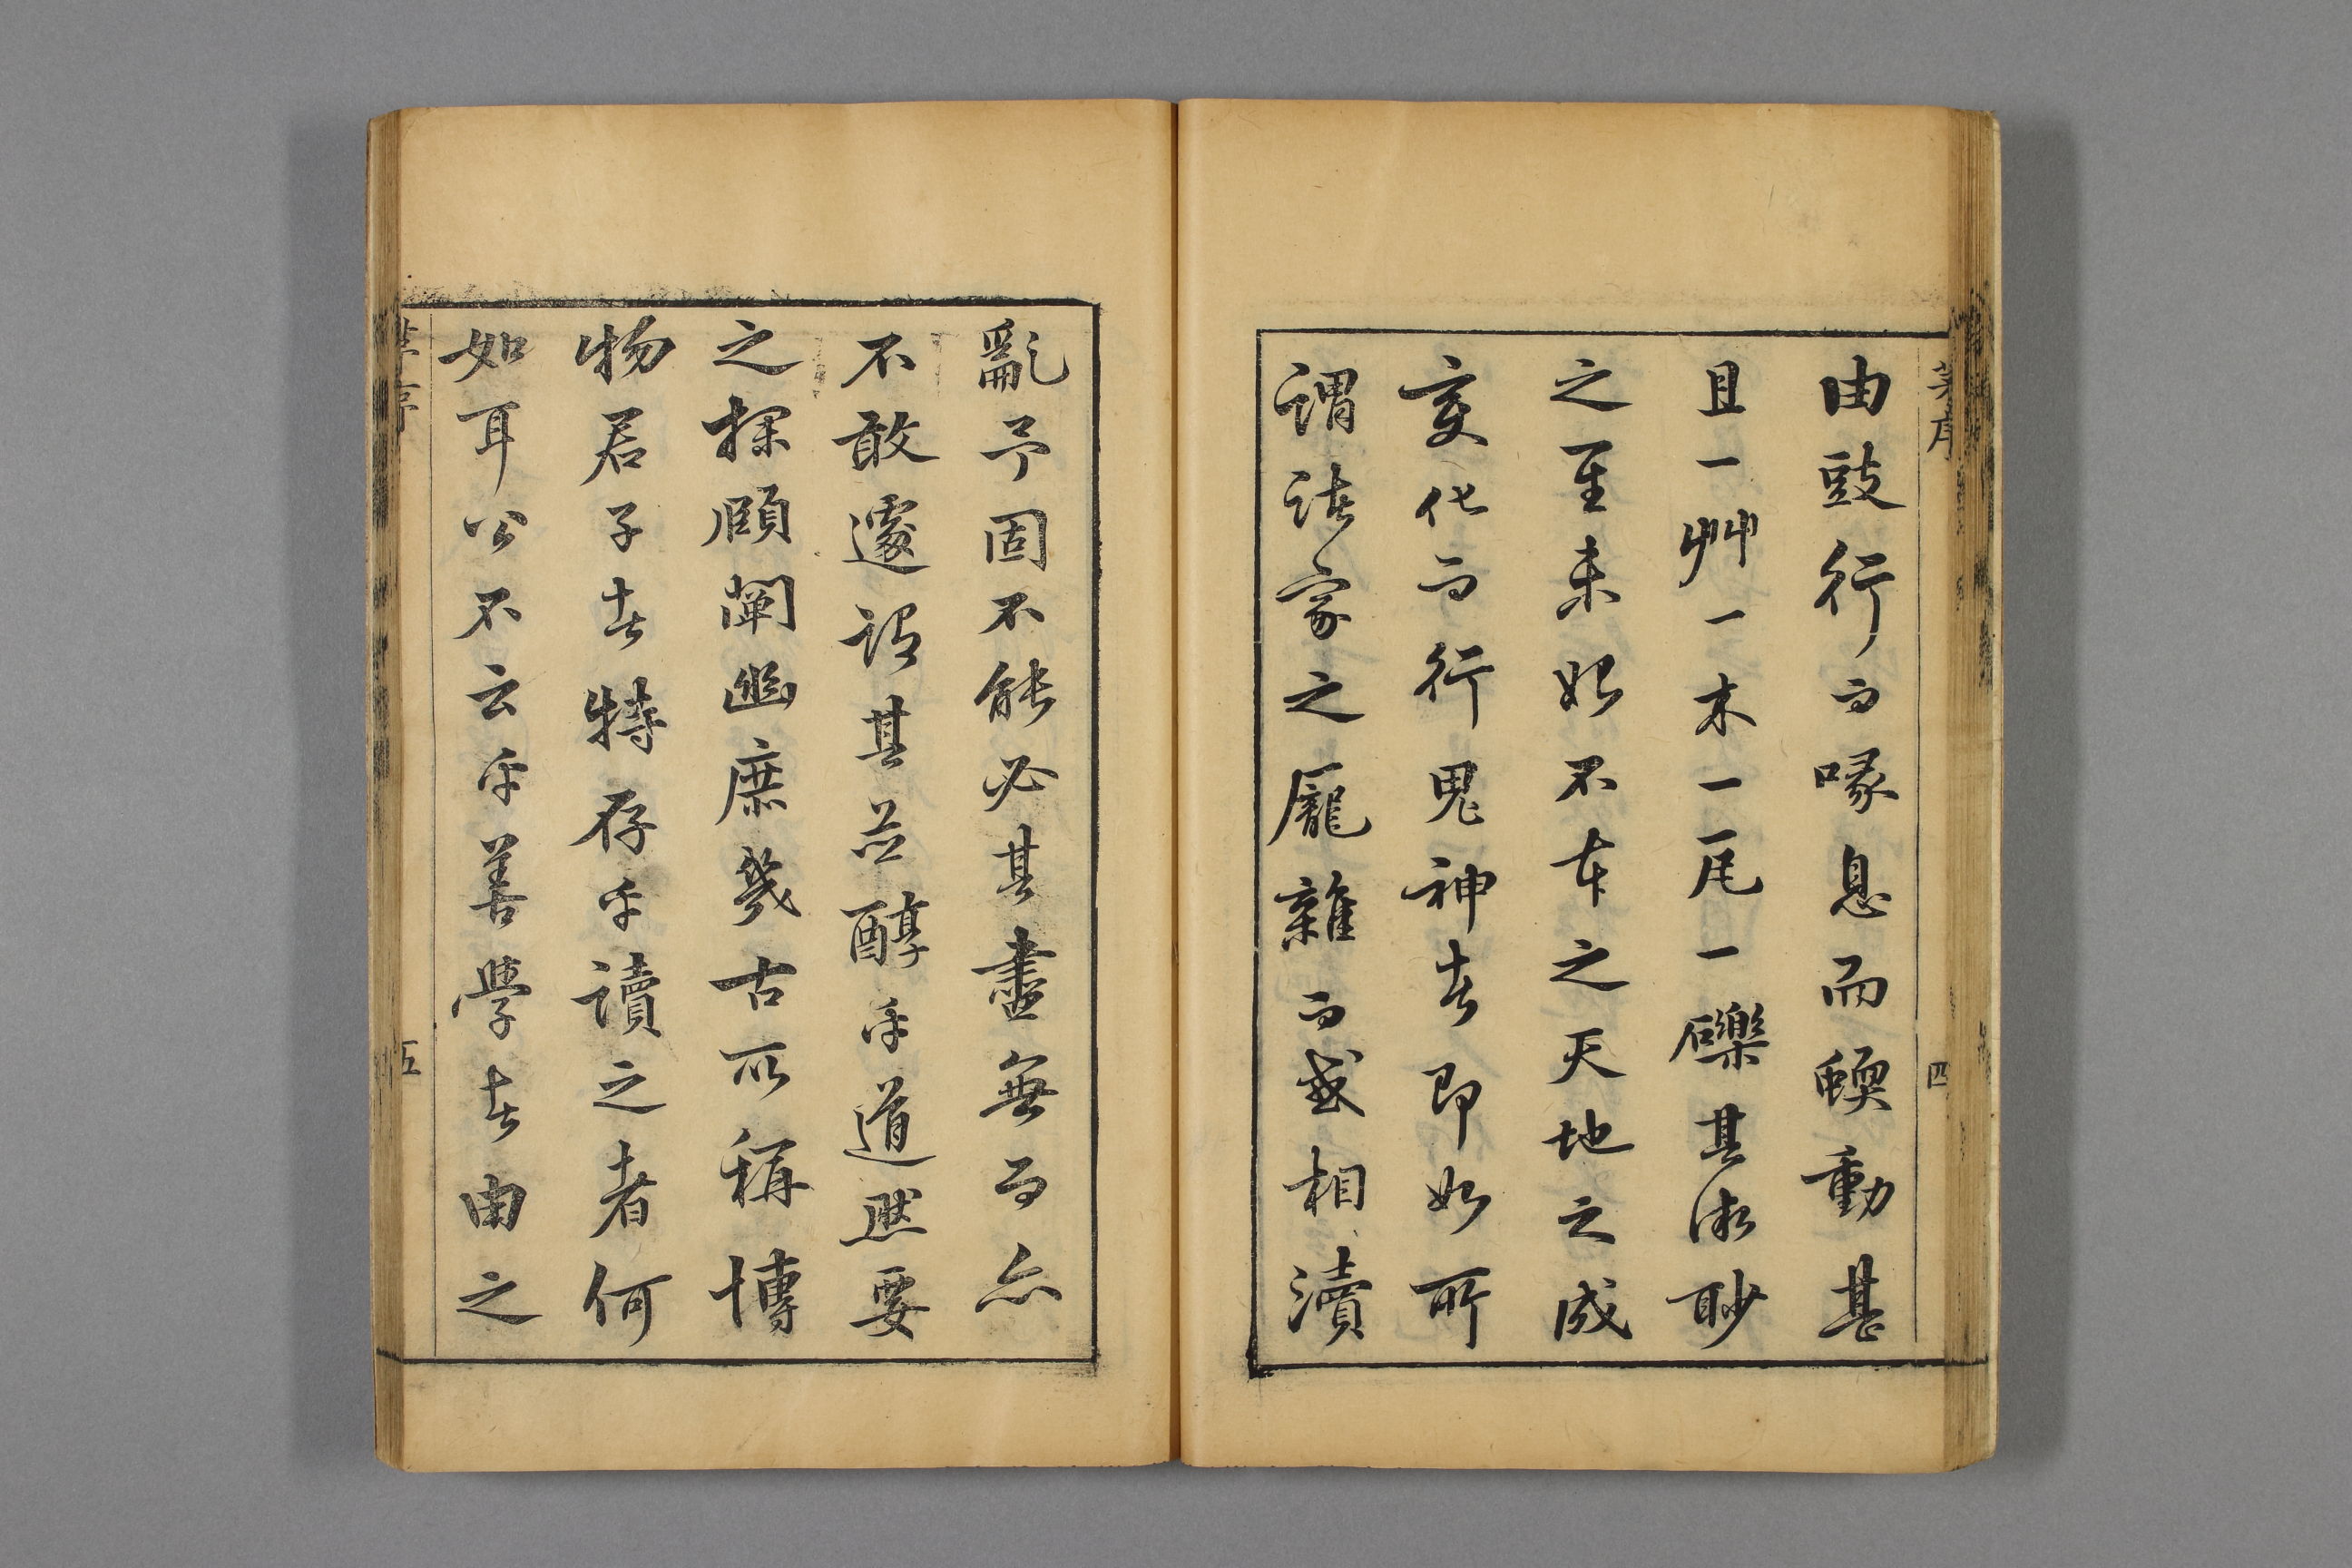 由豉行而喙息而蝡動甚
且一艸一木一尾一礫其微眇
之至未始不本之天地之成
变化而行鬼神者即如所
謂諸家之龐雜而或相瀆
亂予固不能必其盡無而亦
不敢遽謂其並醇乎道然要
之探頤闡幽庶幾古所稱博
物君子者特存乎讀之者何
如耳公不云乎善學者由之
四
五